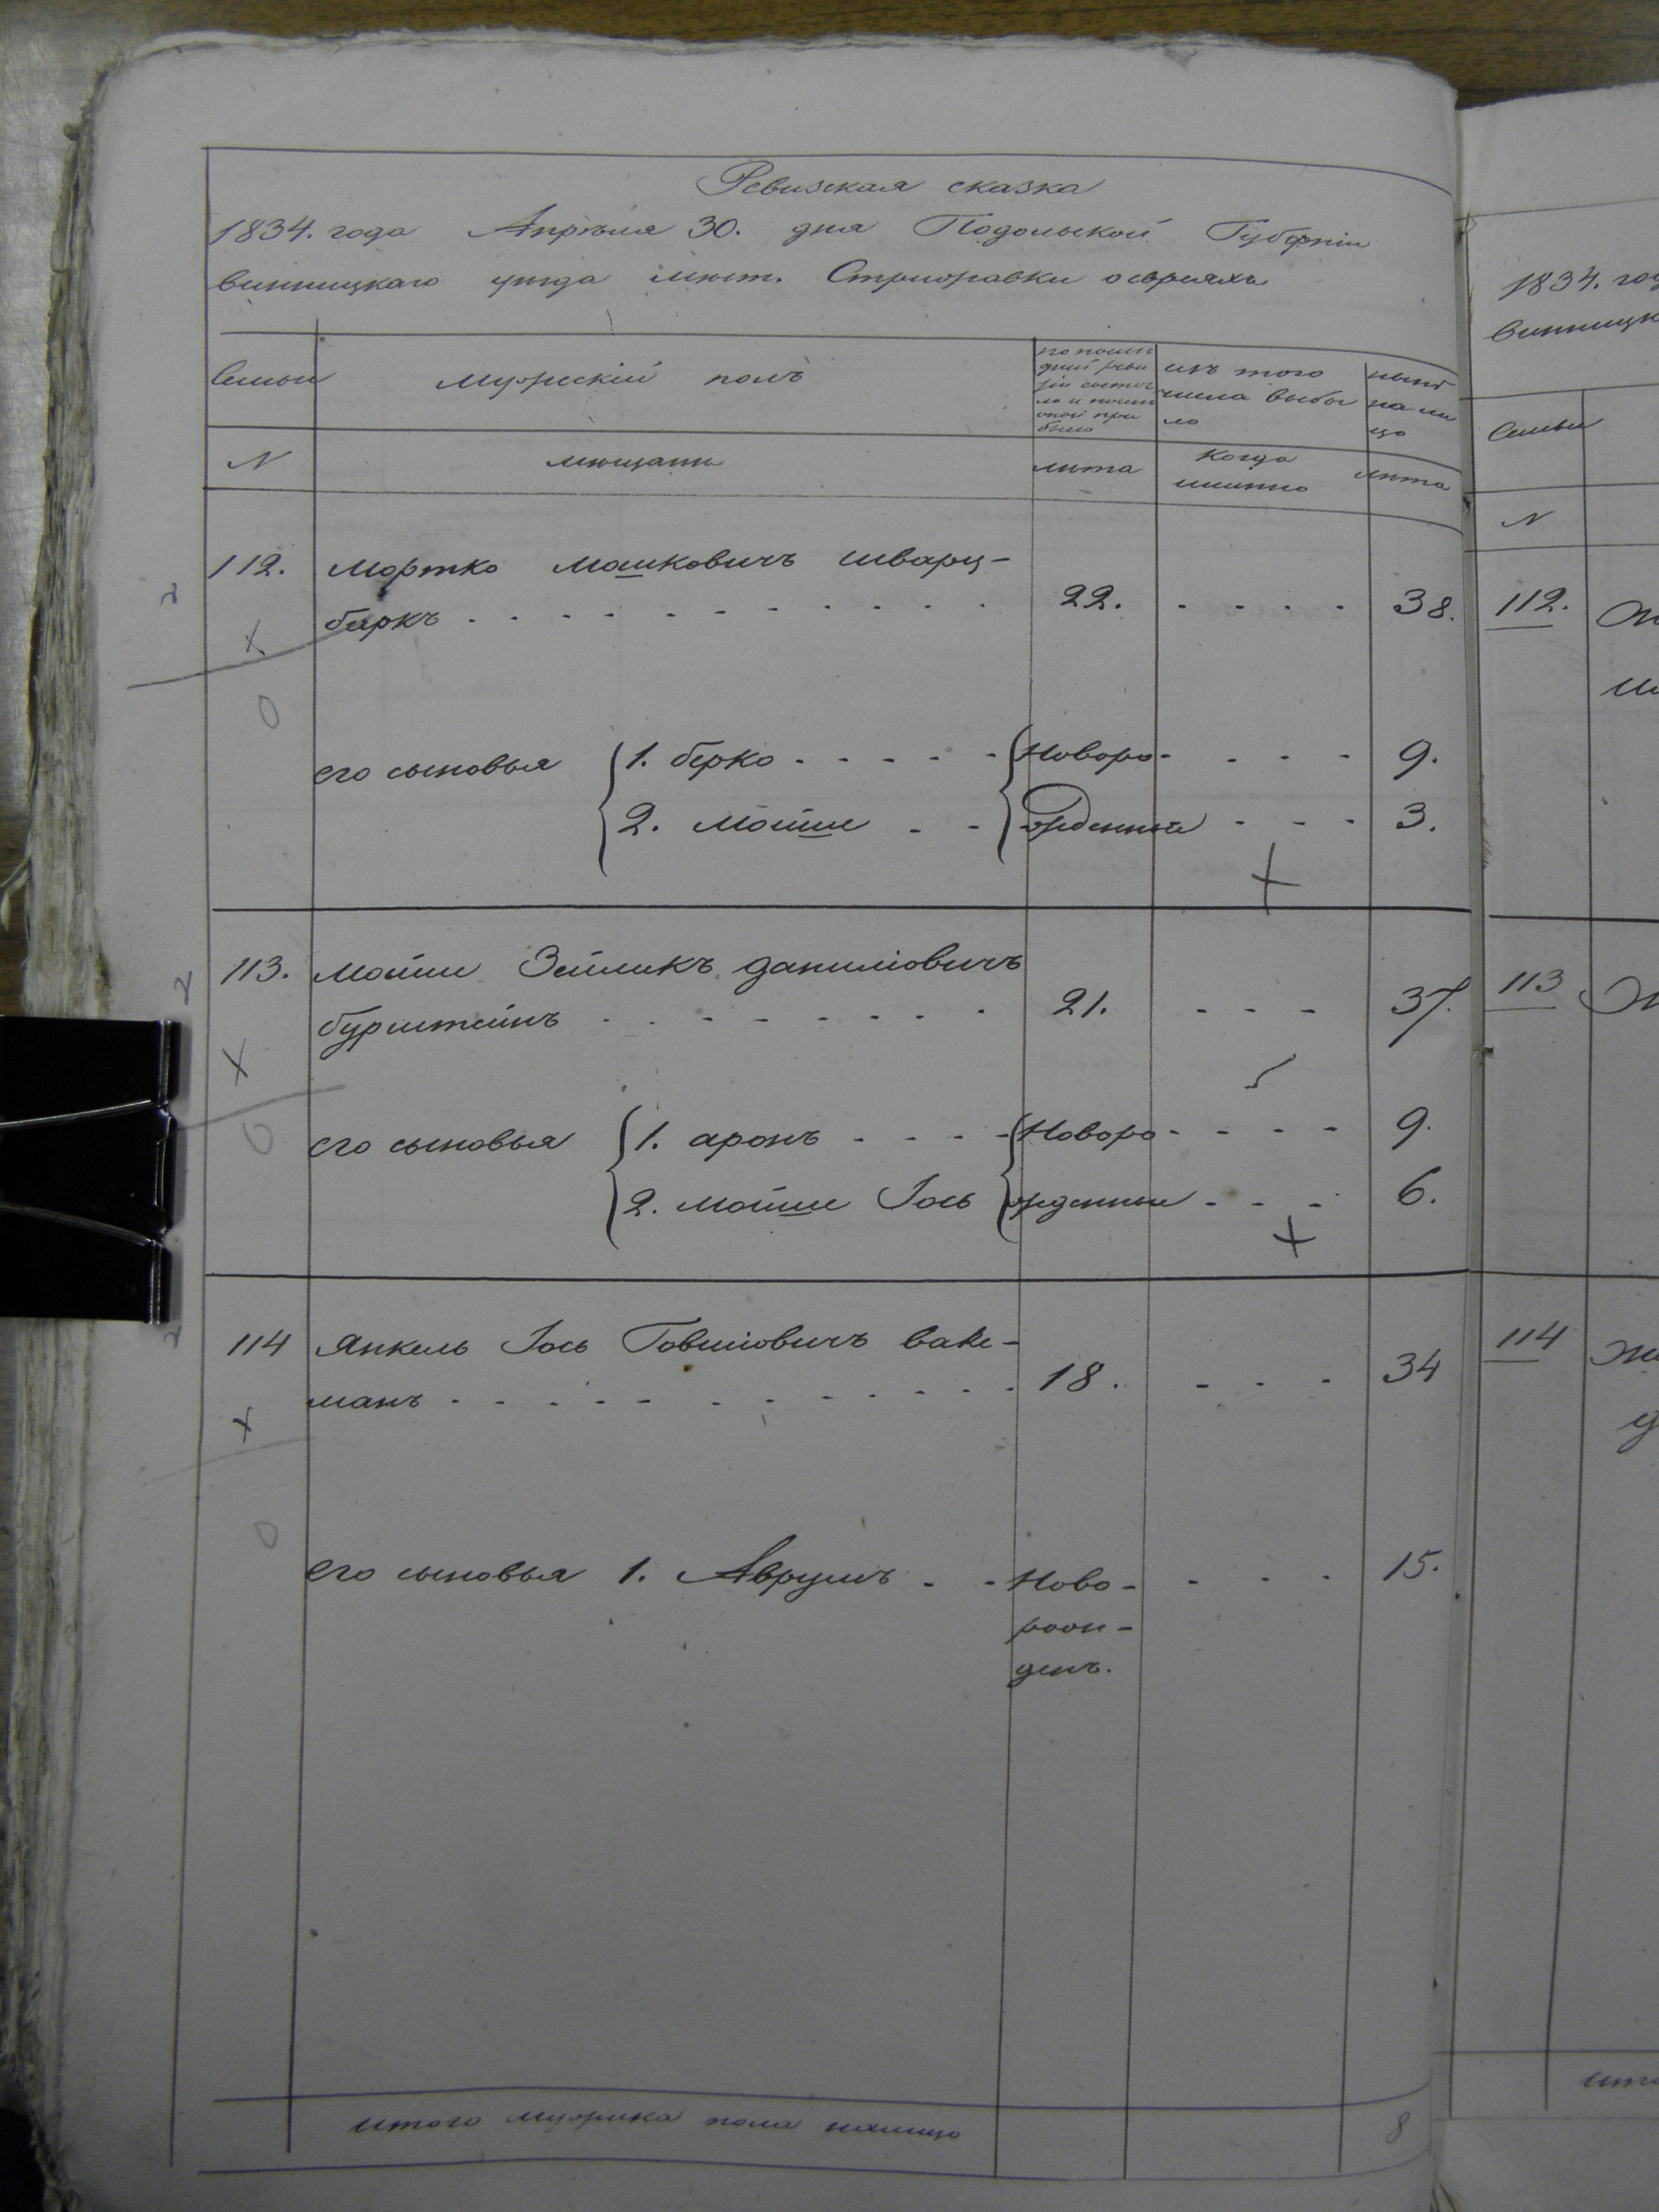 Ревизская сказка
1834. года Апрѣля 30. дня Подольской Губерніи
винницкаго уѣзда мѣст. Стрижавки о евреяхъ
Семьи
мужескій полъ
по послѣ
дней реви
зіи состоя
ло и послѣ
оной при
было
изъ того
числа выбы
ло
нынѣ
на ли
цо
N
мѣщане
лѣта
когда
именно
лѣта
112. Мортко Машковичъ шварц-
беркъ 22. 38.
его сыновья 1. берко Новоро- 9.
2. Мойше жденные 3.
113. Мойше Зейликъ даниліовичъ
бурштейнъ 21. 37.
его сыновья 1. аронъ Новоро- 9.
2. Мойше Іось жденные 6.
114 Янкель Іось Говшіовичъ ваке-
манъ 18. 34
его сыновья 1. Аврумъ Ново- 15.
рож-
денъ.
Итого мужеска пола налицо 8
1834. год
винницк
Семьи
N
112.
113
114